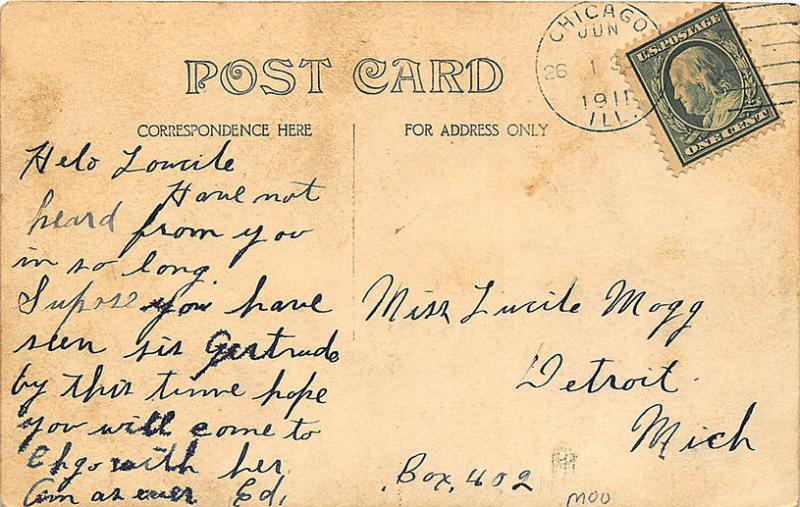 POST CARD
CHICAGO
JUN
26
1911
ILL.
U.S. POSTAGE
ONE CENT
CORRESPONDENCE HERE
FOR ADDRESS ONLY
Helo Loucile
Have not
heard from you
in so long.
Supose you have
seen sis Gertrude
by this time hope
you will come to
Chgo with her
Am as ever Ed.
Miss Lucile Mogg
Detroit.
Mich
Box. 402
MOU